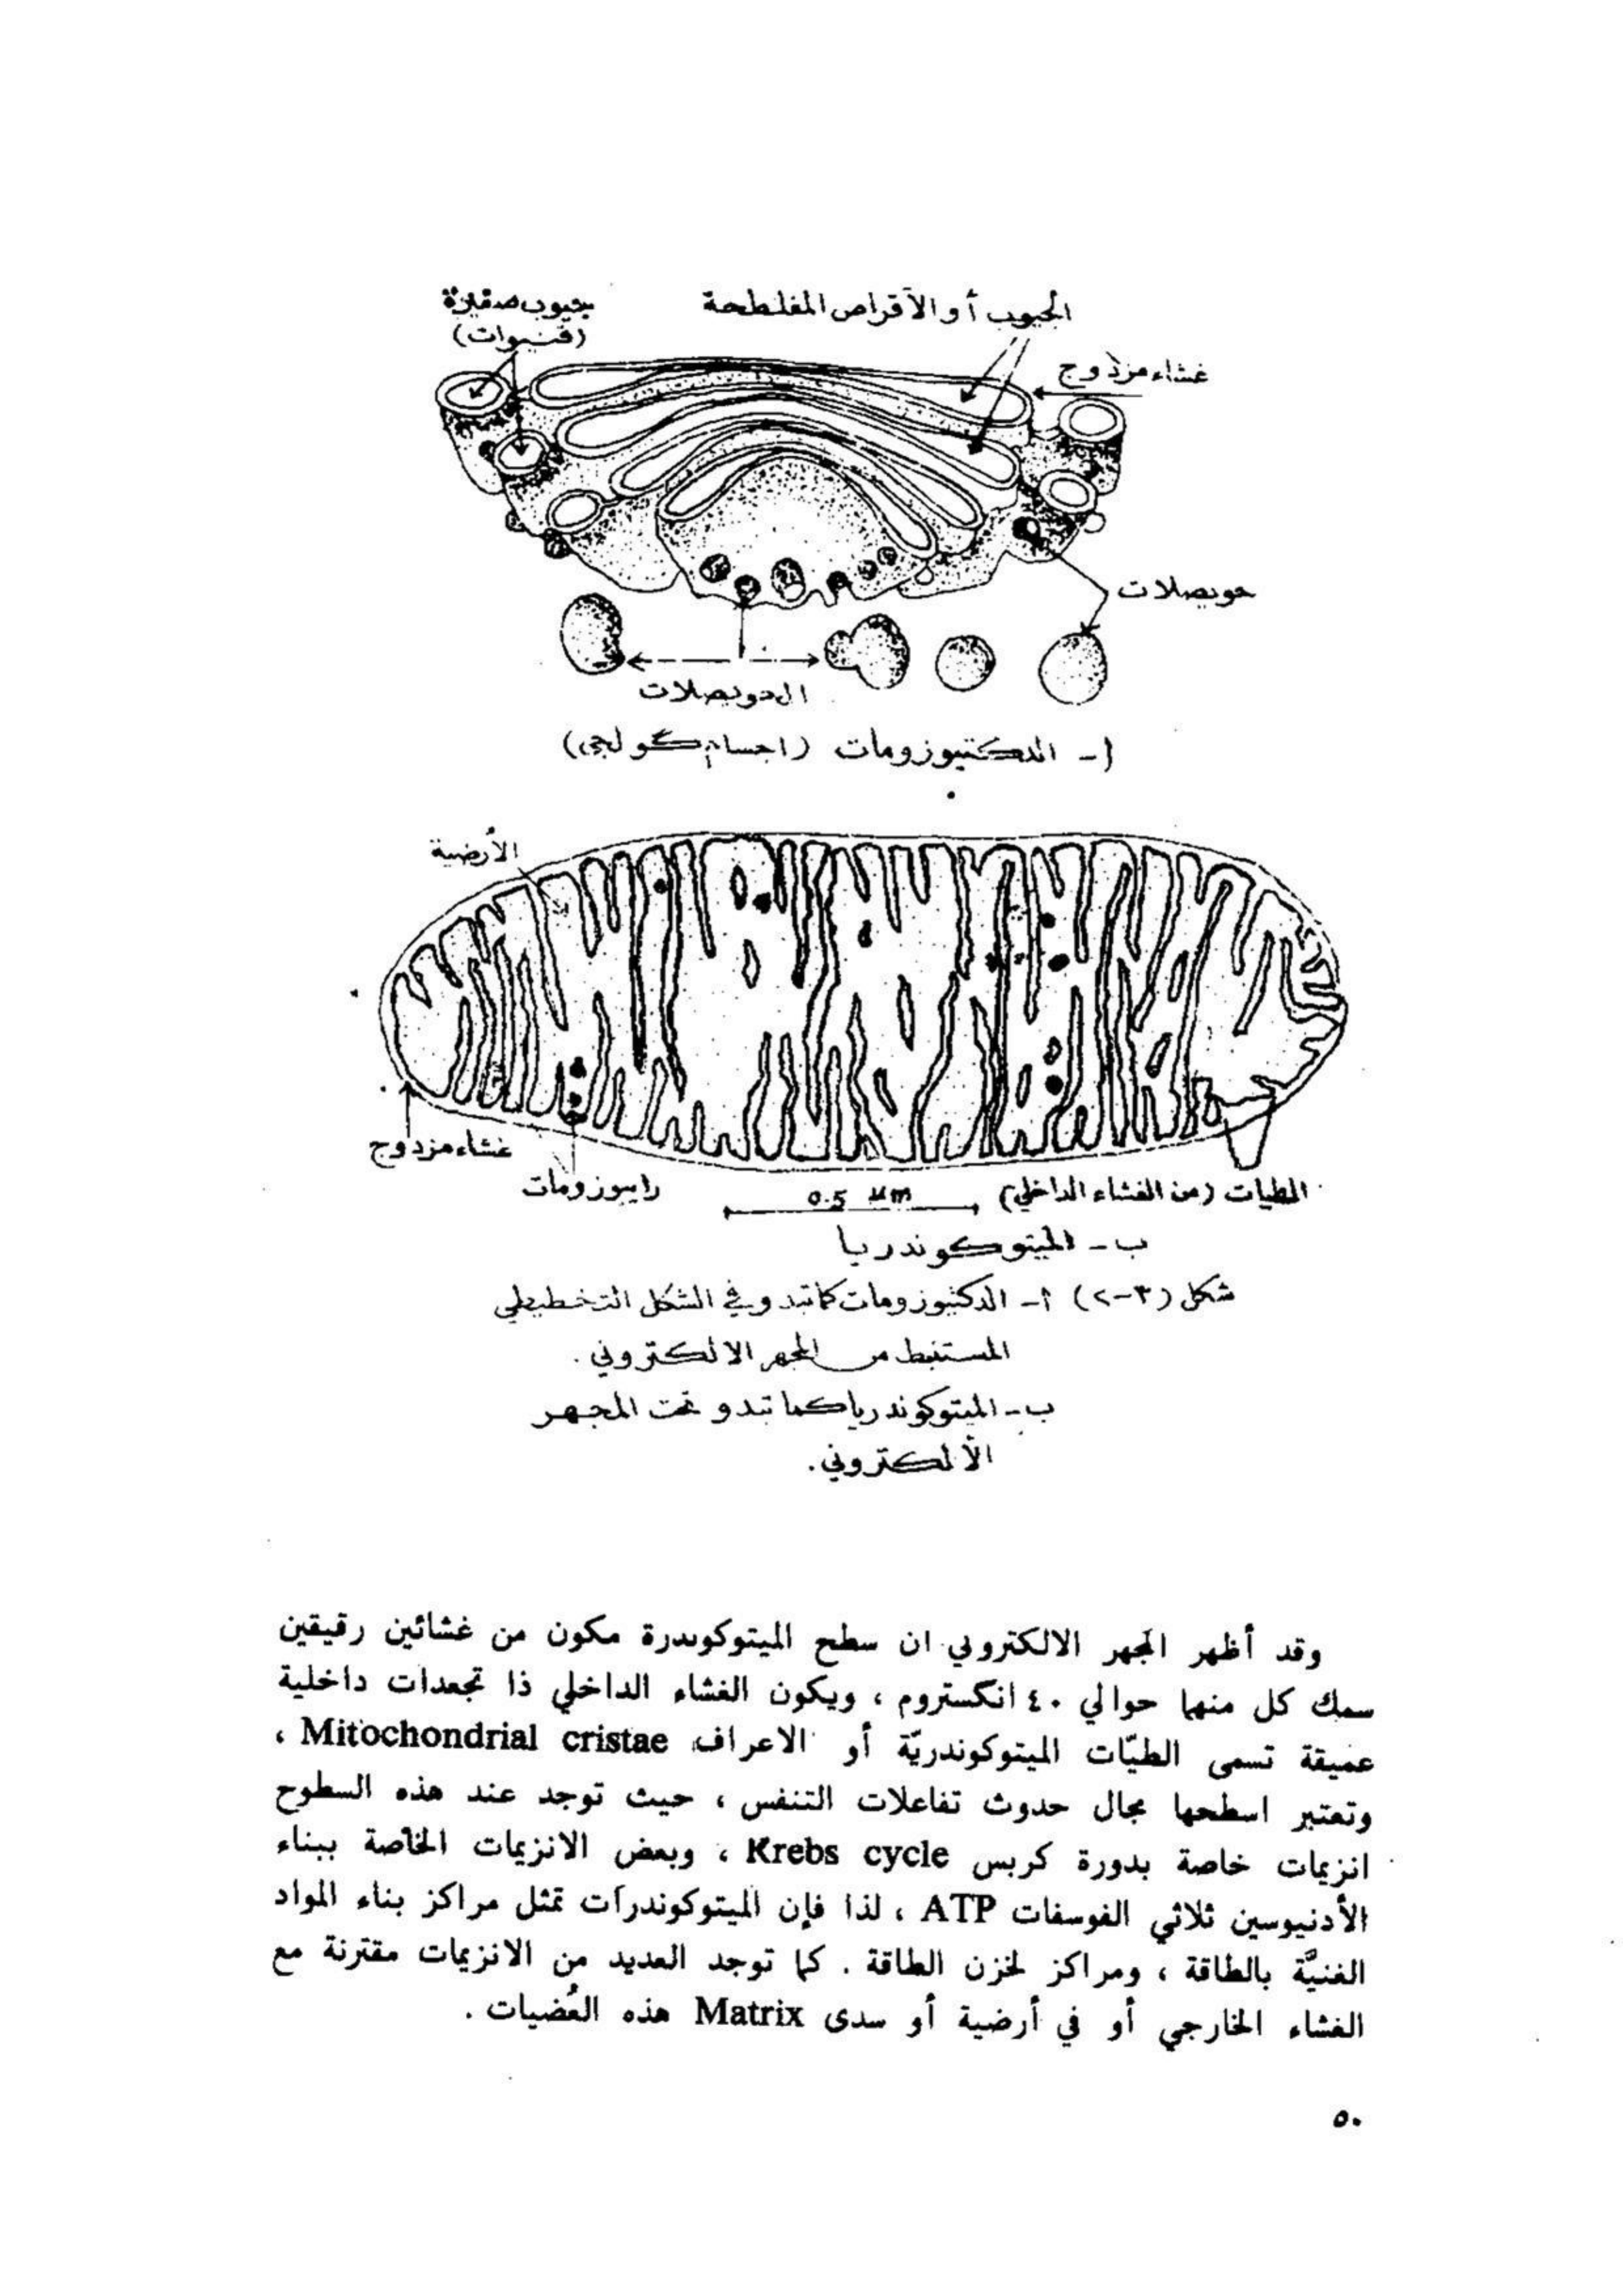 جيوب صغيرة
(قنيوات)
الجيوب أو الأقراص المفلطحة
غشاء مزدوج
حويصلات
الحويصلات
أ - الدكتيوزومات (اجسام گولجي)
الأرضية
غشاء مزدوج
رايبوزومات
0.5 µm
الطيات (من الغشاء الداخلي)
ب - الميتوكوندريا
شكل (٣-٢) أ - الدكتيوزومات كما تبدو في الشكل التخطيطي
المستنبط من المجهر الالكتروني .
ب - الميتوكوندريا كما تبدو تحت المجهر
الألكتروني .
وقد أظهر المجهر الالكتروني ان سطح الميتوكوندرة مكون من غشائين رقيقين
سمك كل منهما حوالي ٤٠ انكستروم ، ويكون الغشاء الداخلي ذا تجعدات داخلية
عميقة تسمى الطيّات الميتوكوندريّة أو الاعراف Mitochondrial cristae ،
وتعتبر اسطحها مجال حدوث تفاعلات التنفس ، حيث توجد عند هذه السطوح
انزيمات خاصة بدورة كربس Krebs cycle ، وبعض الانزيمات الخاصة ببناء
الأدنيوسين ثلاثي الفوسفات ATP ، لذا فإن الميتوكوندرات تمثل مراكز بناء المواد
الغنيَّة بالطاقة ، ومراكز لخزن الطاقة . كما توجد العديد من الانزيمات مقترنة مع
الغشاء الخارجي أو في أرضية أو سدى Matrix هذه العُضيات .
٥٠